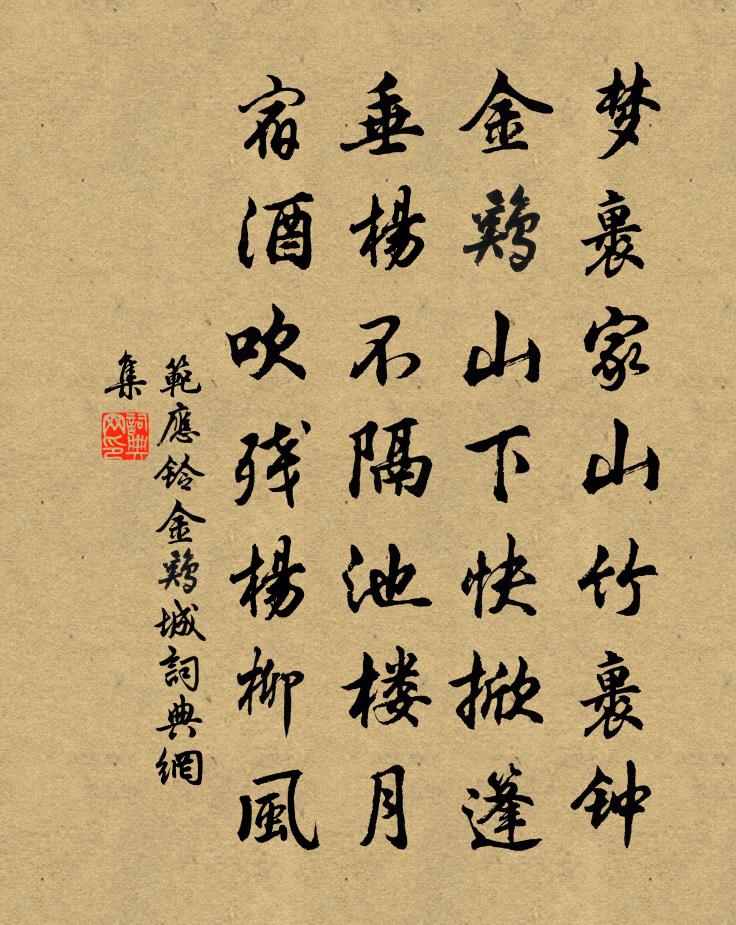 梦裹家山竹裹钟
金鷄山下快掀篷
垂楊不隔池楼月
宿酒吹残楊柳風
範應铃金鷄城詞典網
集
詞典网印